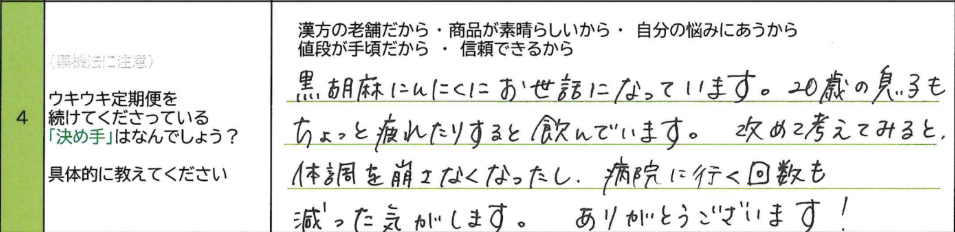 漢方の老舗だから・商品が素晴らしいから・ 自分の悩みにあうから
値段が手頃だから ・ 信頼できるから
(薬機法に注意)
4
ウキウキ定期便を
続けてくださっている
「決め手」はなんでしょう？
具体的に教えてください
黒胡麻にんにくにお世話になっています。20歳の息子も
ちょっと疲れたりすると飲んでいます。 改めて考えてみると、
体調を崩さなくなったし、病院に行く回数も
減った気がします。 ありがとうございます！